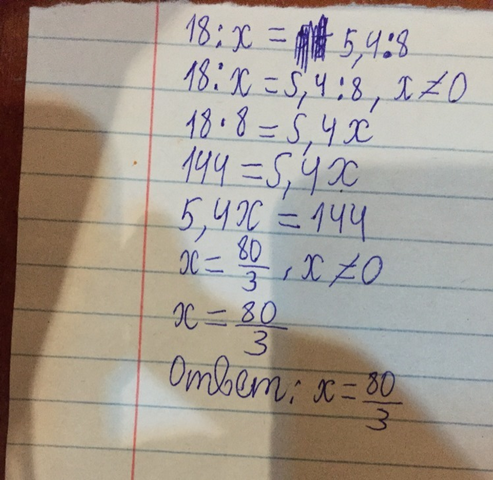 18:x = 5,4:8
18:x=5,4:8, x≠0
18·8=5,4x
144=5,4x
5,4x=144
x=80/3, x≠0
x=80/3
Ответ: x=80/3